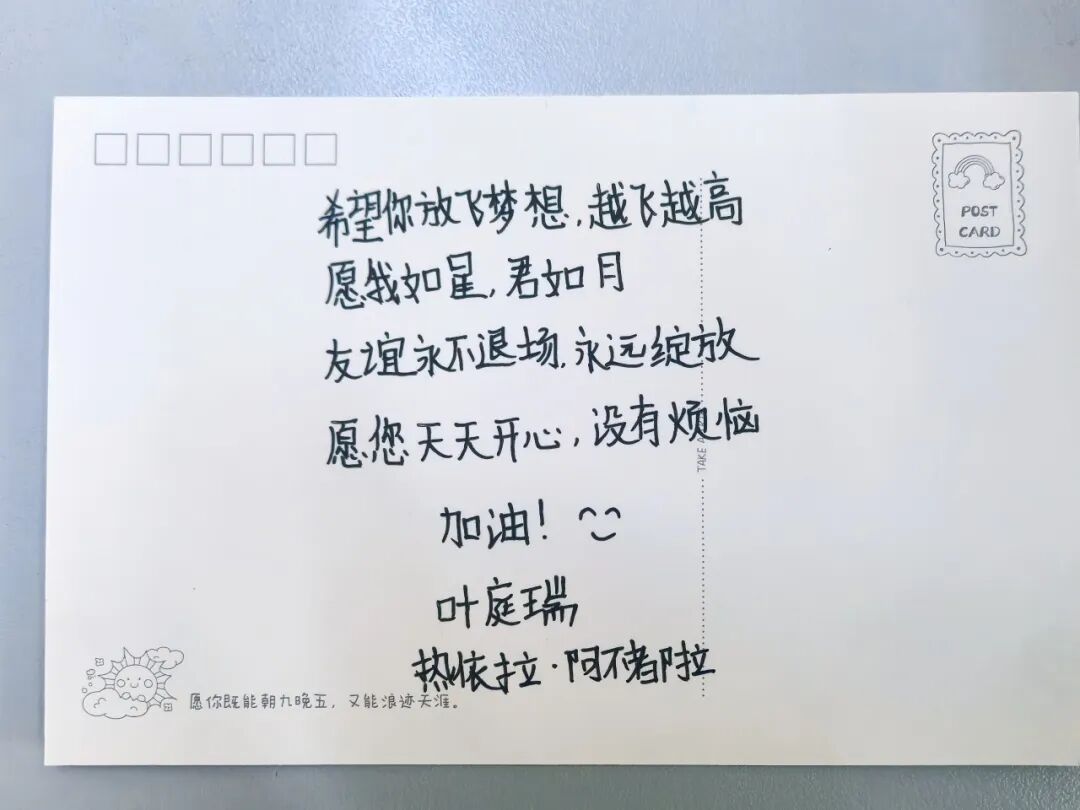 希望你放飞梦想,越飞越高
愿我如星,君如月
友谊永不退场,永远绽放
愿您天天开心,没有烦恼
加油!
叶庭瑞
热依拉·阿不都拉
POST
CARD
TAKE
愿你既能朝九晚五,又能浪迹天涯。